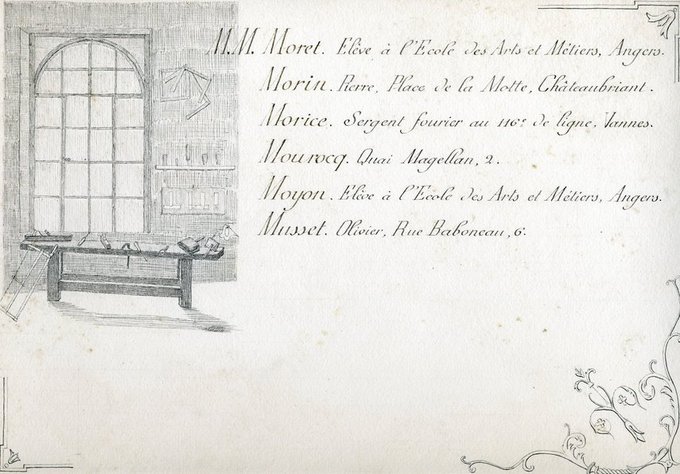 M.M. Moret. Elève à l'Ecole des Arts et Métiers, Angers.
Morin. Pierre, Place de la Motte, Châteaubriant.
Morice. Sergent fourier au 116e de ligne, Vannes.
Mourocq. Quai Magellan, 2.
Moyon. Elève à l'Ecole des Arts et Métiers, Angers.
Musset. Olivier, Rue Baboneau, 6.